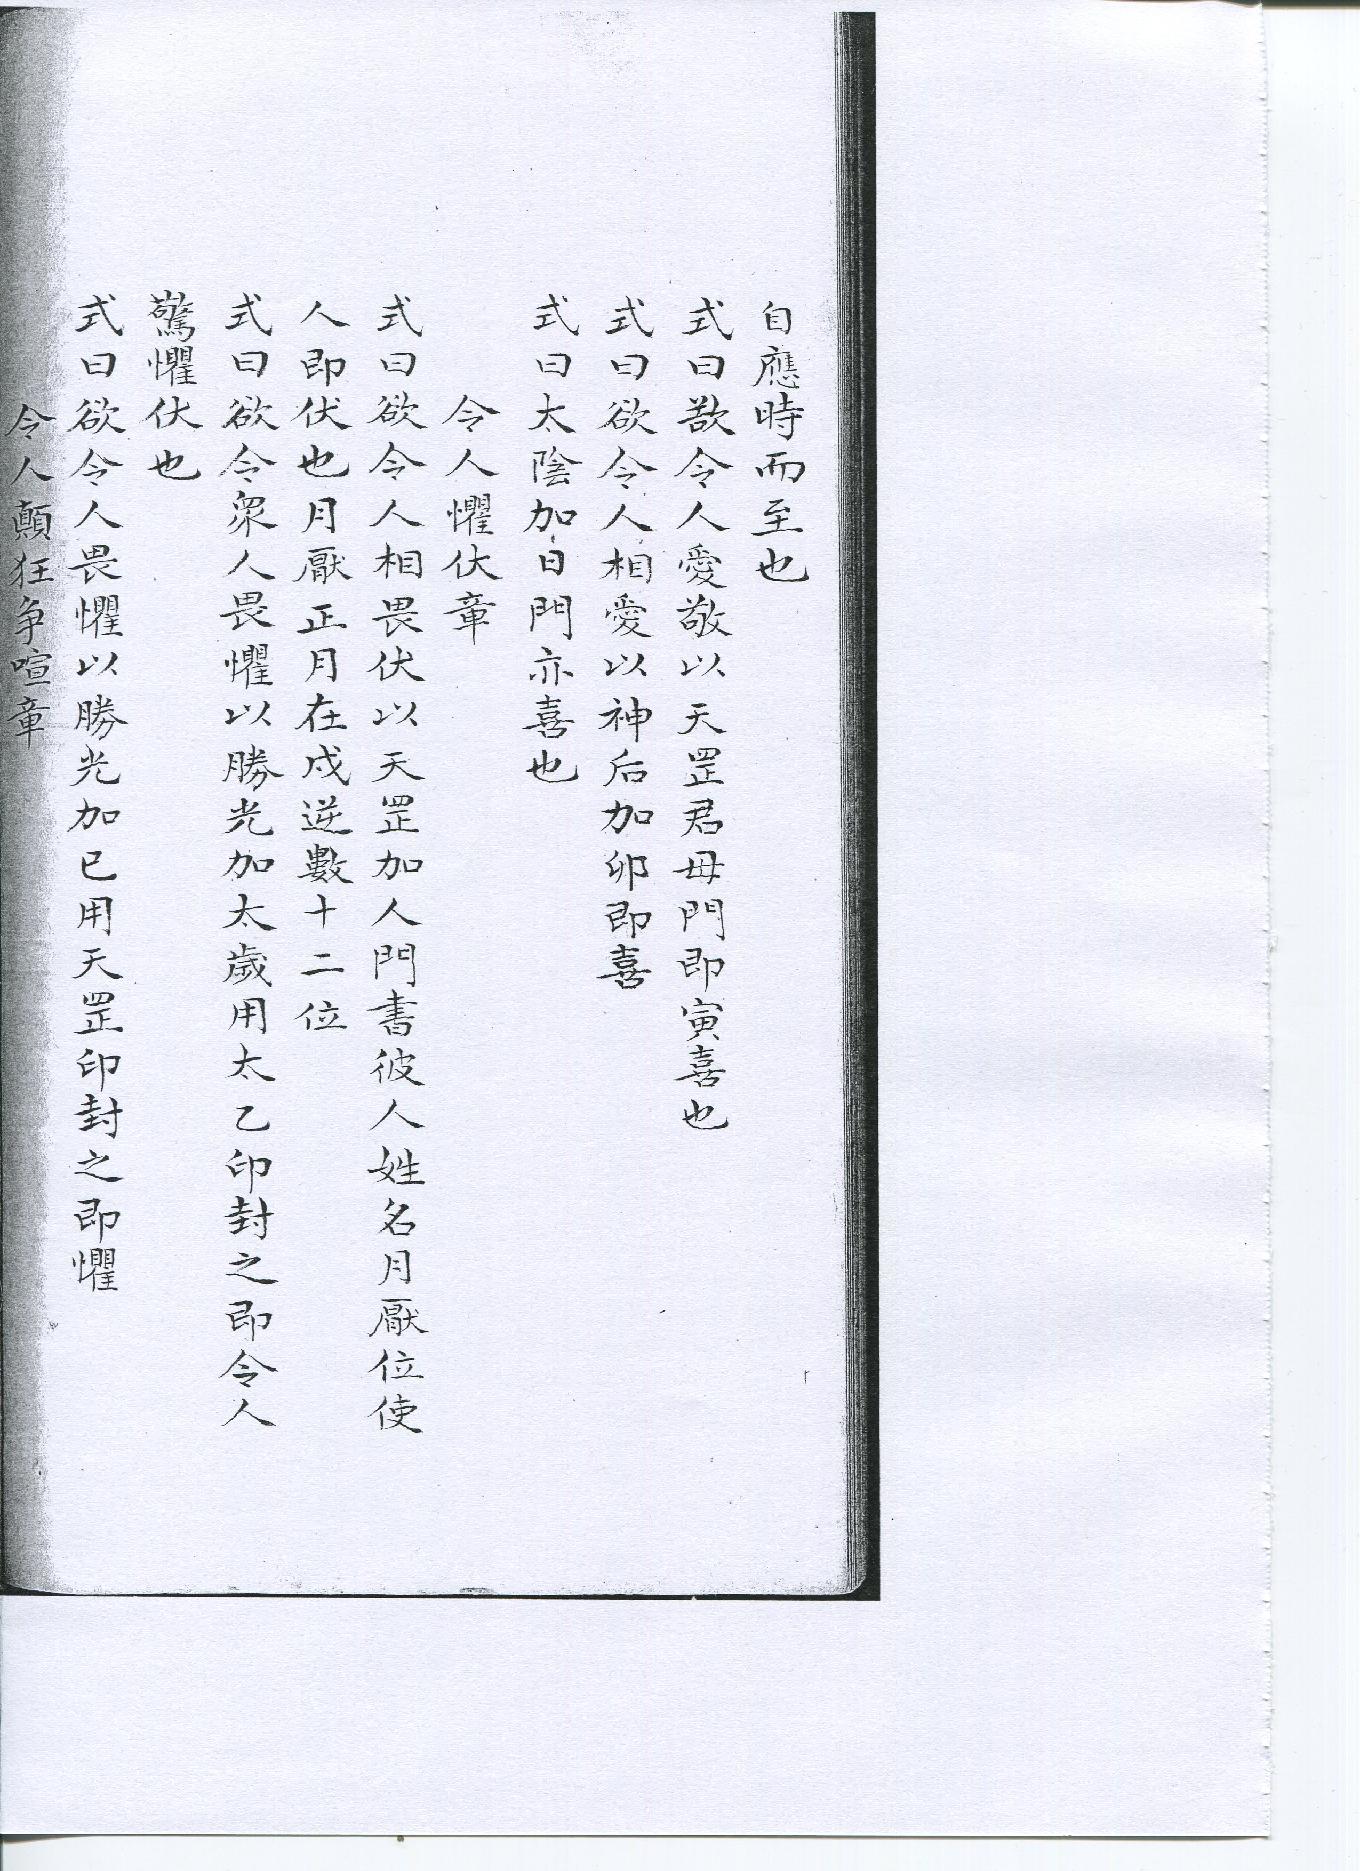 自應時而至也
式曰欲令人愛敬以天罡君毋門即寅喜也
式曰欲令人相愛以神后加卯即喜
式曰太陰加日門亦喜也
令人懼伏章
式曰欲令人相畏伏以天罡加人門書彼人姓名月厭位使
人即伏也月厭正月在戍逆數十二位
式曰欲令衆人畏懼以勝光加太歲用太乙印封之即令人
驚懼伏也
式曰欲令人畏懼以勝光加已用天罡印封之即懼
令人顛狂争喧章